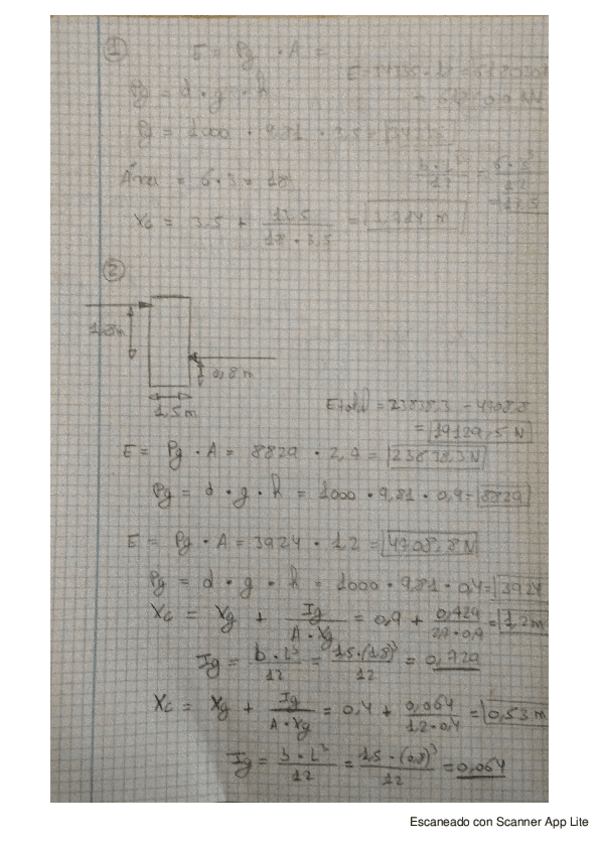 ①
E = Pg · A =
Pg = d · g · h
Pg = 1000 · 9,81 · 3,5 =
Área = 6 · 3 = 18
Xc = 3,5 + 13,5 / 18 · 3,5 =
②
1,8m
0,8 m
1,5m
Etotal = 23838,3 - 4708,8
= 19129,5 N
E = Pg · A = 8829 · 2,7 = 23838,3 N
Pg = d · g · h = 1000 · 9,81 · 0,9 = 8829
E = Pg · A = 3924 · 1,2 = 4708,8 N
Pg = d · g · h = 1000 · 9,81 · 0,4 = 3924
Xc = Xg + Ig / A · Xg = 0,9 + 0,729 / 2,7 · 0,9 = 1,2m
Ig = b · L³ / 12 = 1,5 · (1,8)³ / 12 = 0,729
Xc = Xg + Ig / A · Xg = 0,4 + 0,064 / 1,2 · 0,4 = 0,53 m
Ig = b · L³ / 12 = 1,5 · (0,8)³ / 12 = 0,064
Escaneado con Scanner App Lite